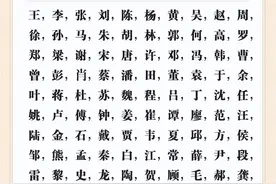 王，李，张，刘，陈，杨，黄，吴，赵，周，
徐，孙，马，朱，胡，林，郭，何，高，罗，
郑，梁，谢，宋，唐，许，邓，冯，韩，曹，
曾，彭，肖，蔡，潘，田，董，袁，于，余，
叶，蒋，杜，苏，魏，程，吕，丁，沈，任，
姚，卢，傅，钟，姜，崔，谭，廖，范，汪，
陆，金，石，戴，贾，韦，夏，邱，方，侯，
邹，熊，孟，秦，白，江，常，薛，尹，段，
雷，黎，史，龙，陶，贺，顾，毛，郝，龚，